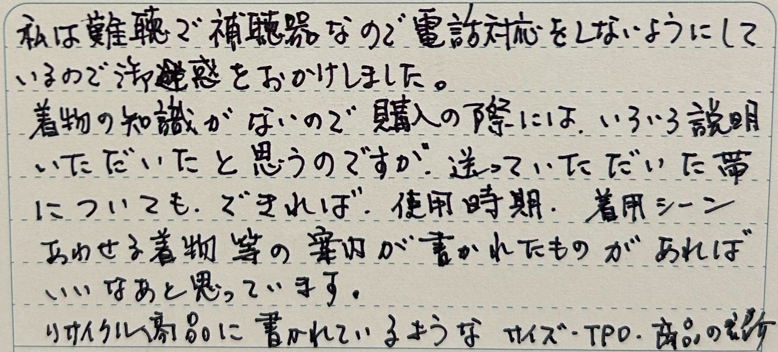 私は難聴で補聴器なので電話対応をしないようにして
いるので御迷惑をおかけしました。
着物の知識がないので購入の際には、いろいろ説明
いただいたと思うのですが、送っていただいた帯
についても、できれば、使用時期、着用シーン
あわせる着物等の案内が書かれたものがあれば
いいなあと思っています。
リサイクル商品に書かれているような サイズ・TPO・商品の